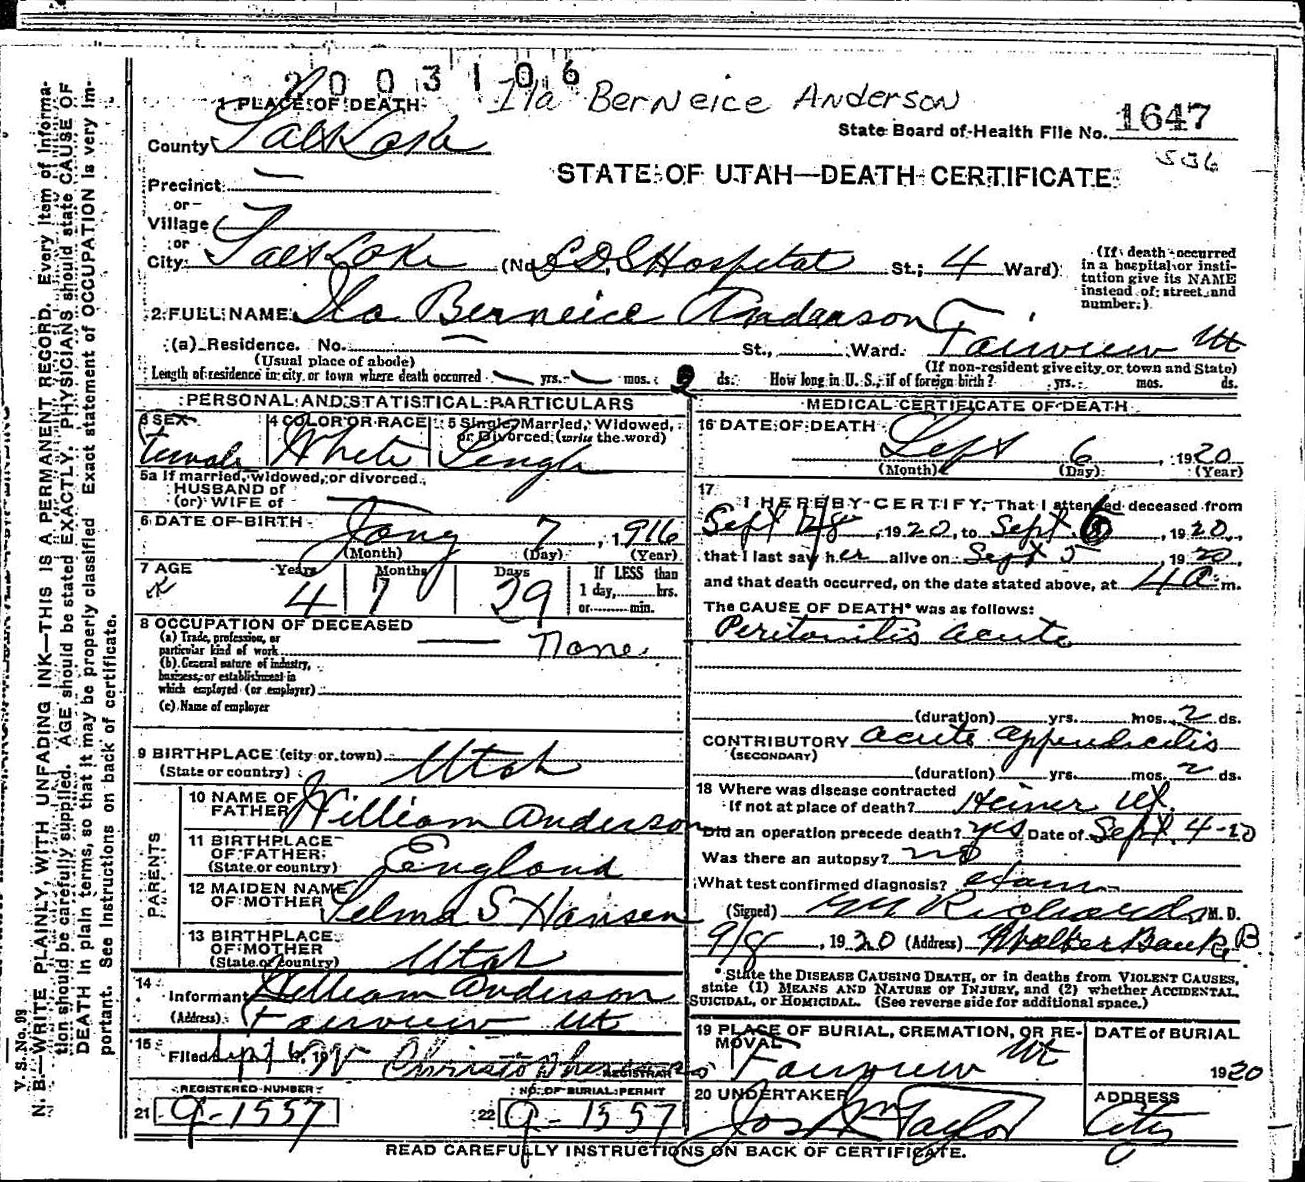 2003106
Ila Berneice Anderson
1 PLACE OF DEATH
State Board of Health File No. 1647
County Salt Lake
536
STATE OF UTAH—DEATH CERTIFICATE
Precinct —
or
Village
or
City Salt Lake (No. L D S Hospital St.; 4 Ward)
(If death occurred in a hospital or insti-
tution give its NAME
instead of street and
number.)
2 FULL NAME Ila Berneice Anderson
(a) Residence. No. — St., Ward. Fairview Ut
(Usual place of abode) (If non-resident give city or town and State)
Length of residence in city or town where death occurred yrs. mos. 2 ds. How long in U. S., if of foreign birth? yrs. mos. ds.
PERSONAL AND STATISTICAL PARTICULARS
3 SEX 4 COLOR OR RACE 5 Single, Married, Widowed,
or Divorced (write the word)
Female White Single
5a If married, widowed, or divorced
HUSBAND of
(or) WIFE of
6 DATE OF BIRTH Jany 7, 1916
(Month) (Day) (Year)
7 AGE Years Months Days If LESS than
4 7 29 1 day, hrs.
or min.
8 OCCUPATION OF DECEASED
(a) Trade, profession, or
particular kind of work None
(b) General nature of industry,
business, or establishment in
which employed (or employer)
(c) Name of employer
9 BIRTHPLACE (city or town)
(State or country) Utah
PARENTS
10 NAME OF
FATHER William Anderson
11 BIRTHPLACE
OF FATHER
(State or country) England
12 MAIDEN NAME
OF MOTHER Selma S Hansen
13 BIRTHPLACE
OF MOTHER
(State or country) Utah
14
Informant William Anderson
(Address) Fairview Ut
15
Filed Sept 6, 19
REGISTRAR
REGISTERED NUMBER NO. OF BURIAL PERMIT
21 9-1557 22 9-1557
MEDICAL CERTIFICATE OF DEATH
16 DATE OF DEATH Sept 6, 1920
(Month) (Day) (Year)
17
I HEREBY CERTIFY, That I attended deceased from
Sept, 1920, to Sept 6, 1920,
that I last saw her alive on Sept 5 1920
and that death occurred, on the date stated above, at 4 a m.
The CAUSE OF DEATH* was as follows:
Peritonitis acute
(duration) yrs. mos. 2 ds.
CONTRIBUTORY acute appendicitis
(SECONDARY)
(duration) yrs. mos. 2 ds.
18 Where was disease contracted
If not at place of death? Heiner Ut.
Did an operation precede death? yes Date of Sept. 4-20
Was there an autopsy? no
What test confirmed diagnosis? exam
(Signed) G M Richards M. D.
9/8, 1920 (Address) Walker Bank B
* State the DISEASE CAUSING DEATH, or in deaths from VIOLENT CAUSES,
state (1) MEANS AND NATURE OF INJURY, and (2) whether ACCIDENTAL,
SUICIDAL, or HOMICIDAL. (See reverse side for additional space.)
19 PLACE OF BURIAL, CREMATION, OR RE-
MOVAL DATE of BURIAL
Fairview Ut 1920
20 UNDERTAKER ADDRESS
Jos Wm Taylor City
READ CAREFULLY INSTRUCTIONS ON BACK OF CERTIFICATE.
V. S. No. 93
N. B.—WRITE PLAINLY, WITH UNFADING INK—THIS IS A PERMANENT RECORD. Every item of informa-
tion should be carefully supplied. AGE should be stated EXACTLY. PHYSICIANS should state CAUSE OF
DEATH in plain terms, so that it may be properly classified. Exact statement of OCCUPATION is very im-
portant. See instructions on back of certificate.